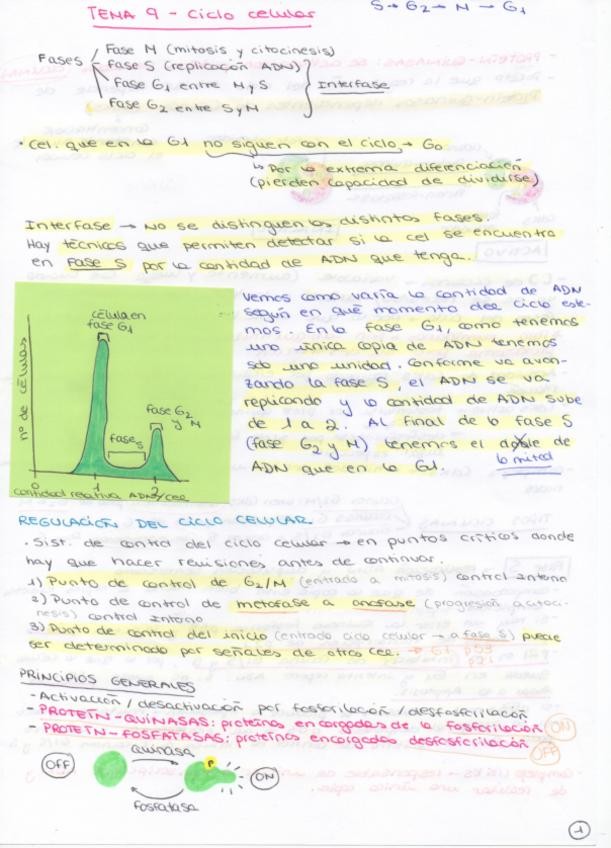 TEMA 9 - Ciclo celular
S → G2 → M → G1
Fases
Fase M (mitosis y citocinesis)
Fase S (replicación ADN)
Fase G1 entre M y S
Fase G2 entre S y M
Interfase
· Cel. que en la G1 no siguen con el ciclo → G0
↳ Por la extrema diferenciación
(pierden capacidad de dividirse)
Interfase → No se distinguen las distintas fases.
Hay técnicas que permiten detectar si la cel se encuentra
en Fase S por la cantidad de ADN que tenga.
nº de células
célula en
fase G1
fase S
fase G2
y M
0 1 2
cantidad relativa ADN/cel.
Vemos como varía la cantidad de ADN
según en qué momento del ciclo este-
mos. En la Fase G1, como tenemos
una única copia de ADN tenemos
solo una unidad. Conforme va avan-
zando la fase S, el ADN se va
replicando y la cantidad de ADN sube
de 1 a 2. Al final de la fase S
(fase G2 y M) tenemos el doble de
ADN que en la G1.
la mitad
REGULACIÓN DEL CICLO CELULAR
· Sist. de control del ciclo celular → en puntos críticos donde
hay que hacer revisiones antes de continuar
1) Punto de control de G2/M (entrada a mitosis) control interno
2) Punto de control de metafase a anafase (progresión a citoci-
nesis) control interno
3) Punto de control del inicio (entrada ciclo celular → a fase S) puede
ser determinado por señales de otras cel. → G1 p53
p21
PRINCIPIOS GENERALES
- Activación / desactivación por fosforilación / desfosforilación
- PROTEÍN-QUINASAS: proteínas encargadas de la fosforilación ON
- PROTEÍN-FOSFATASAS: proteínas encargadas desfosforilación OFF
OFF
quinasa
P
ON
fosfatasa
1